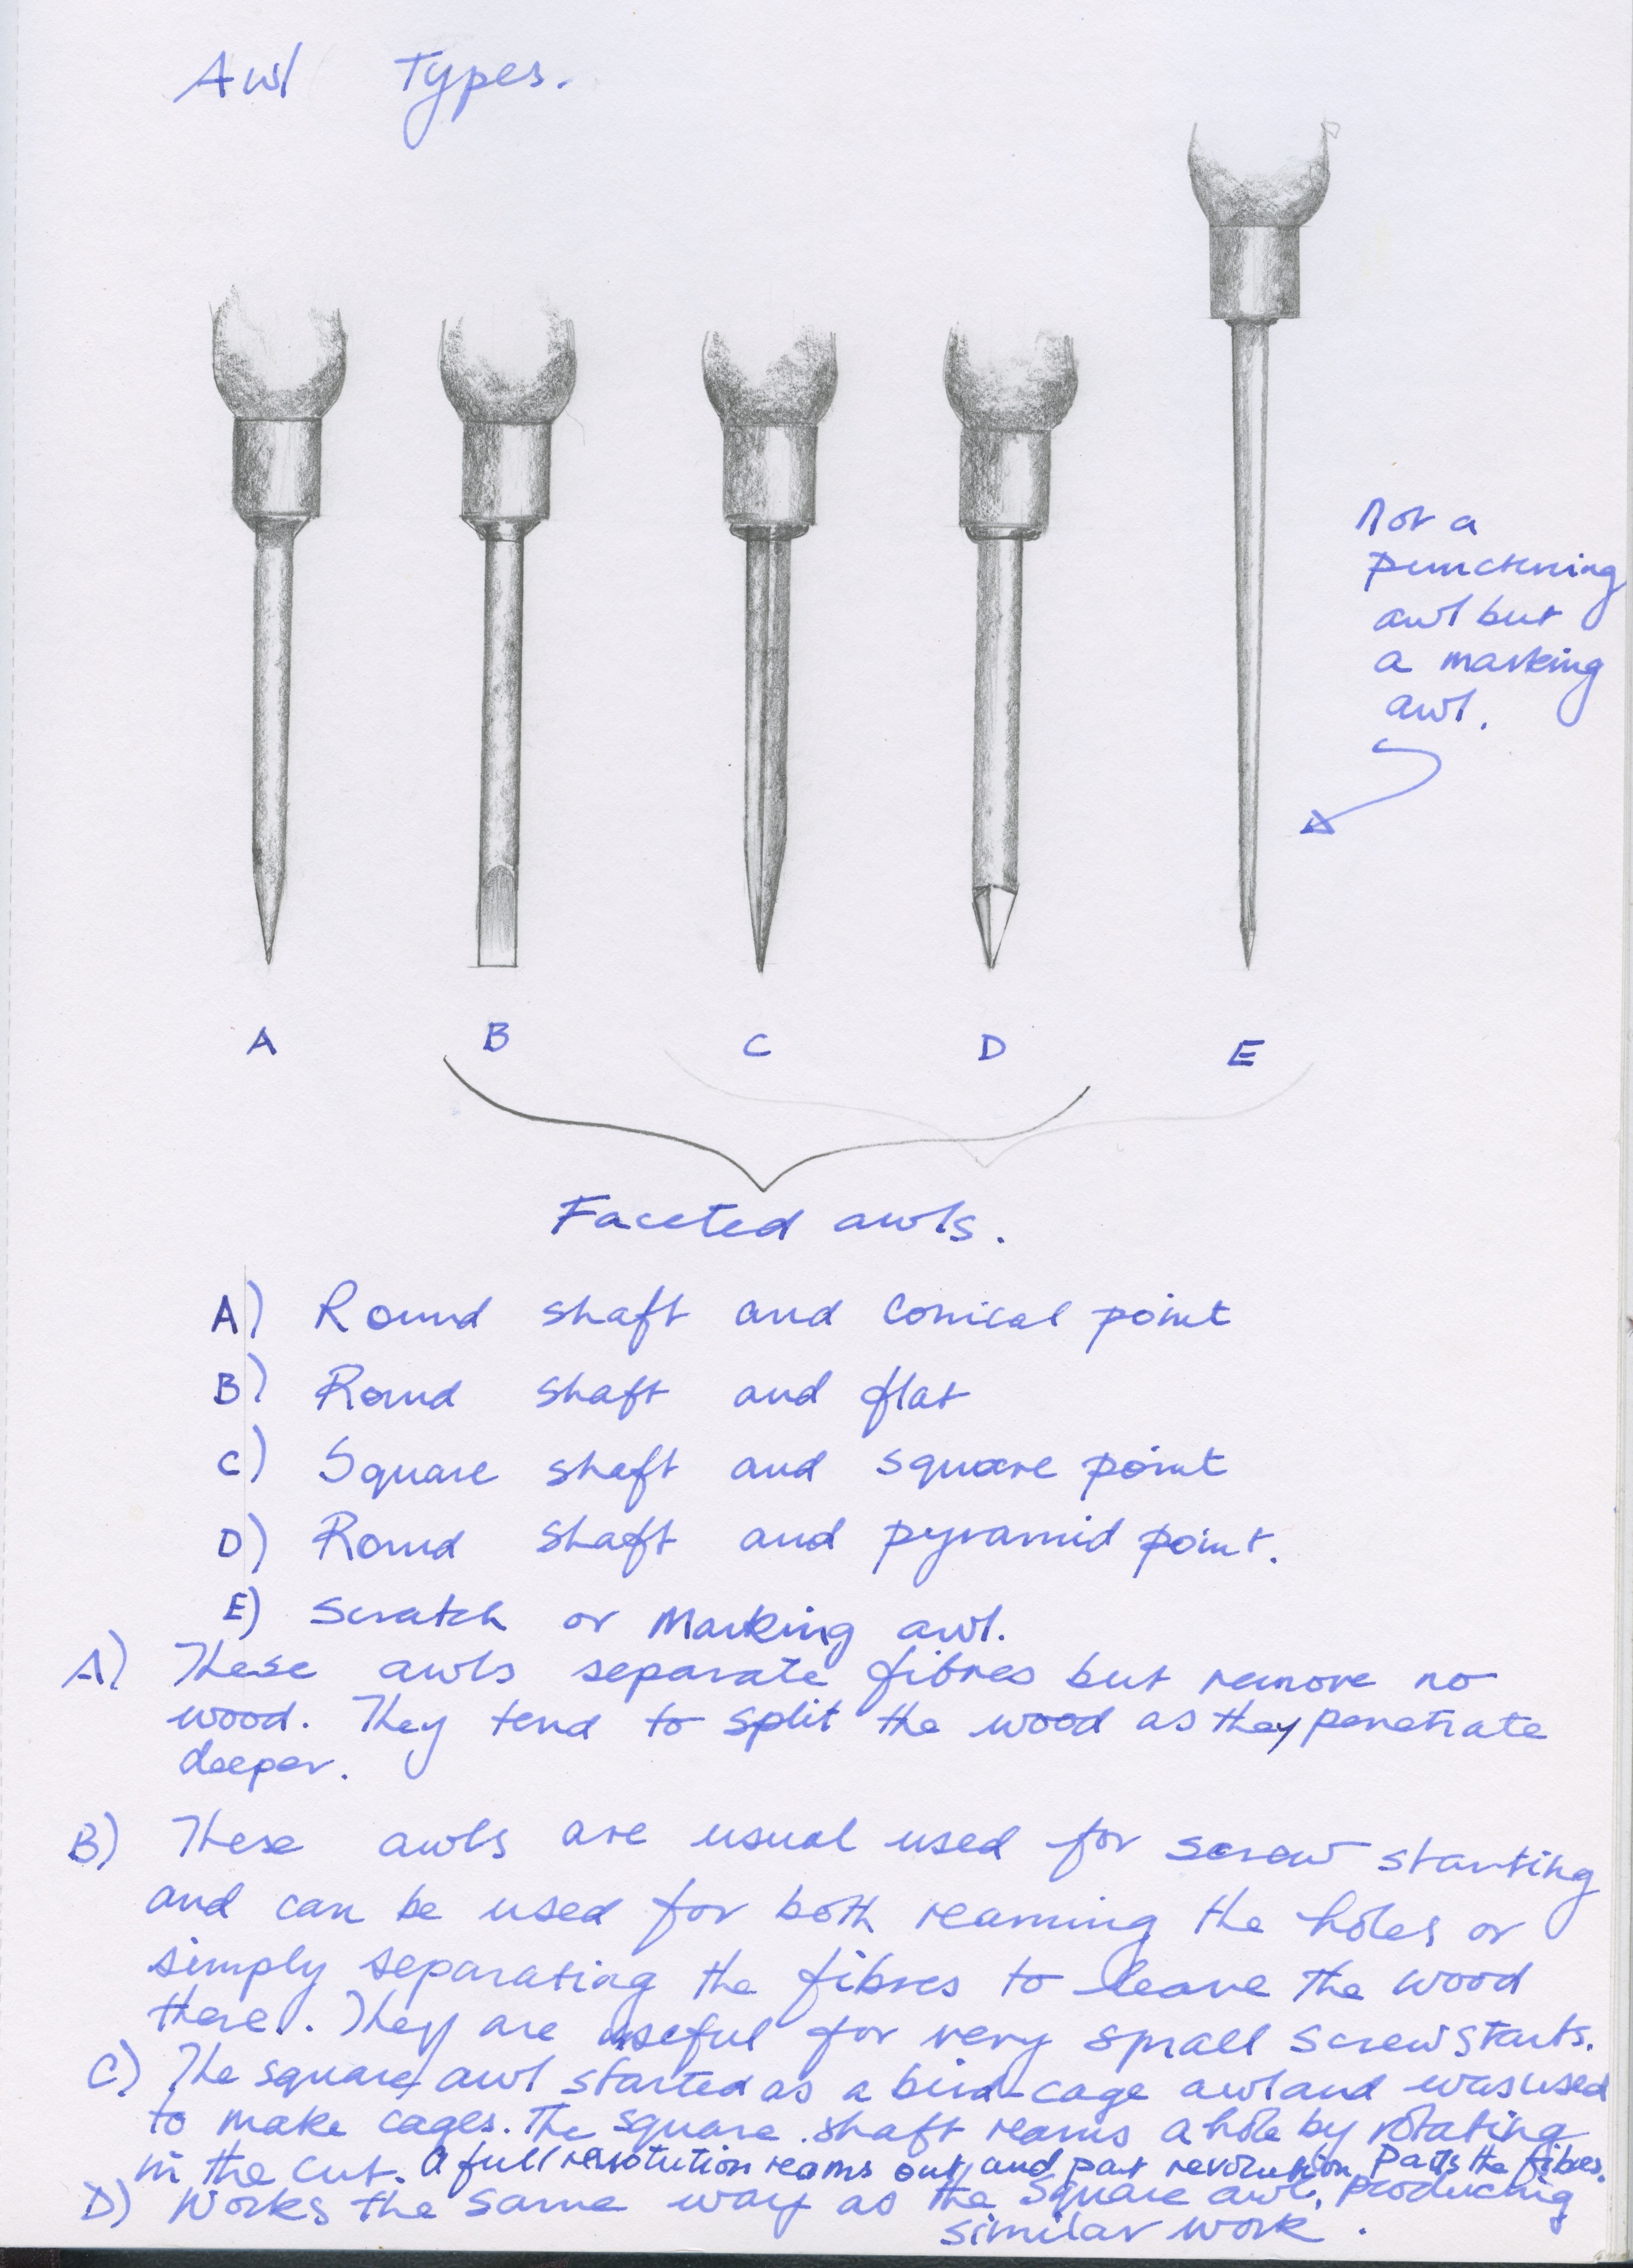 Awl Types.
Not a
puncturing
awl but
a marking
awl.
A B C D E
Faceted awls.
A) Round shaft and conical point
B) Round shaft and flat
C) Square shaft and square point
D) Round shaft and pyramid point.
E) Scratch or Marking awl.
A) These awls separate fibres but remove no
wood. They tend to split the wood as they penetrate
deeper.
B) These awls are usual used for screw starting
and can be used for both reaming the holes or
simply separating the fibres to leave the wood
there. They are useful for very small screw starts.
C) The square awl started as a bird-cage awl and was used
to make cages. The square shaft reams a hole by rotating
in the cut. A full revolution reams out and part revolution parts the fibres.
D) Works the same way as the square awl, producing
similar work.